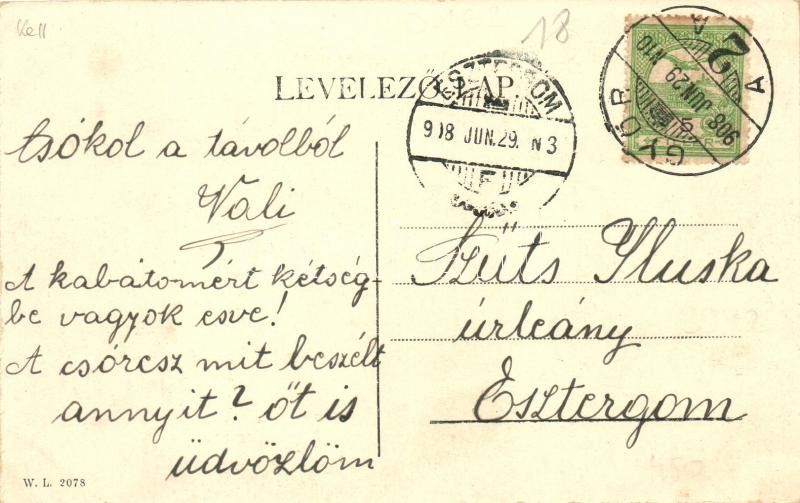 Kell
18
LEVELEZŐ-LAP.
ESZTERGOM
908 JUN.29. N3
F
GYŐR
908 JUN 29 N10
2
A
A
Csókol a távolból
Vali
A kabátomért kétség-
be vagyok esve!
A csóresz mit beszélt
annyit? őt is
üdvözlöm
Szüts Iluska
úrleány
Esztergom
W. L. 2078